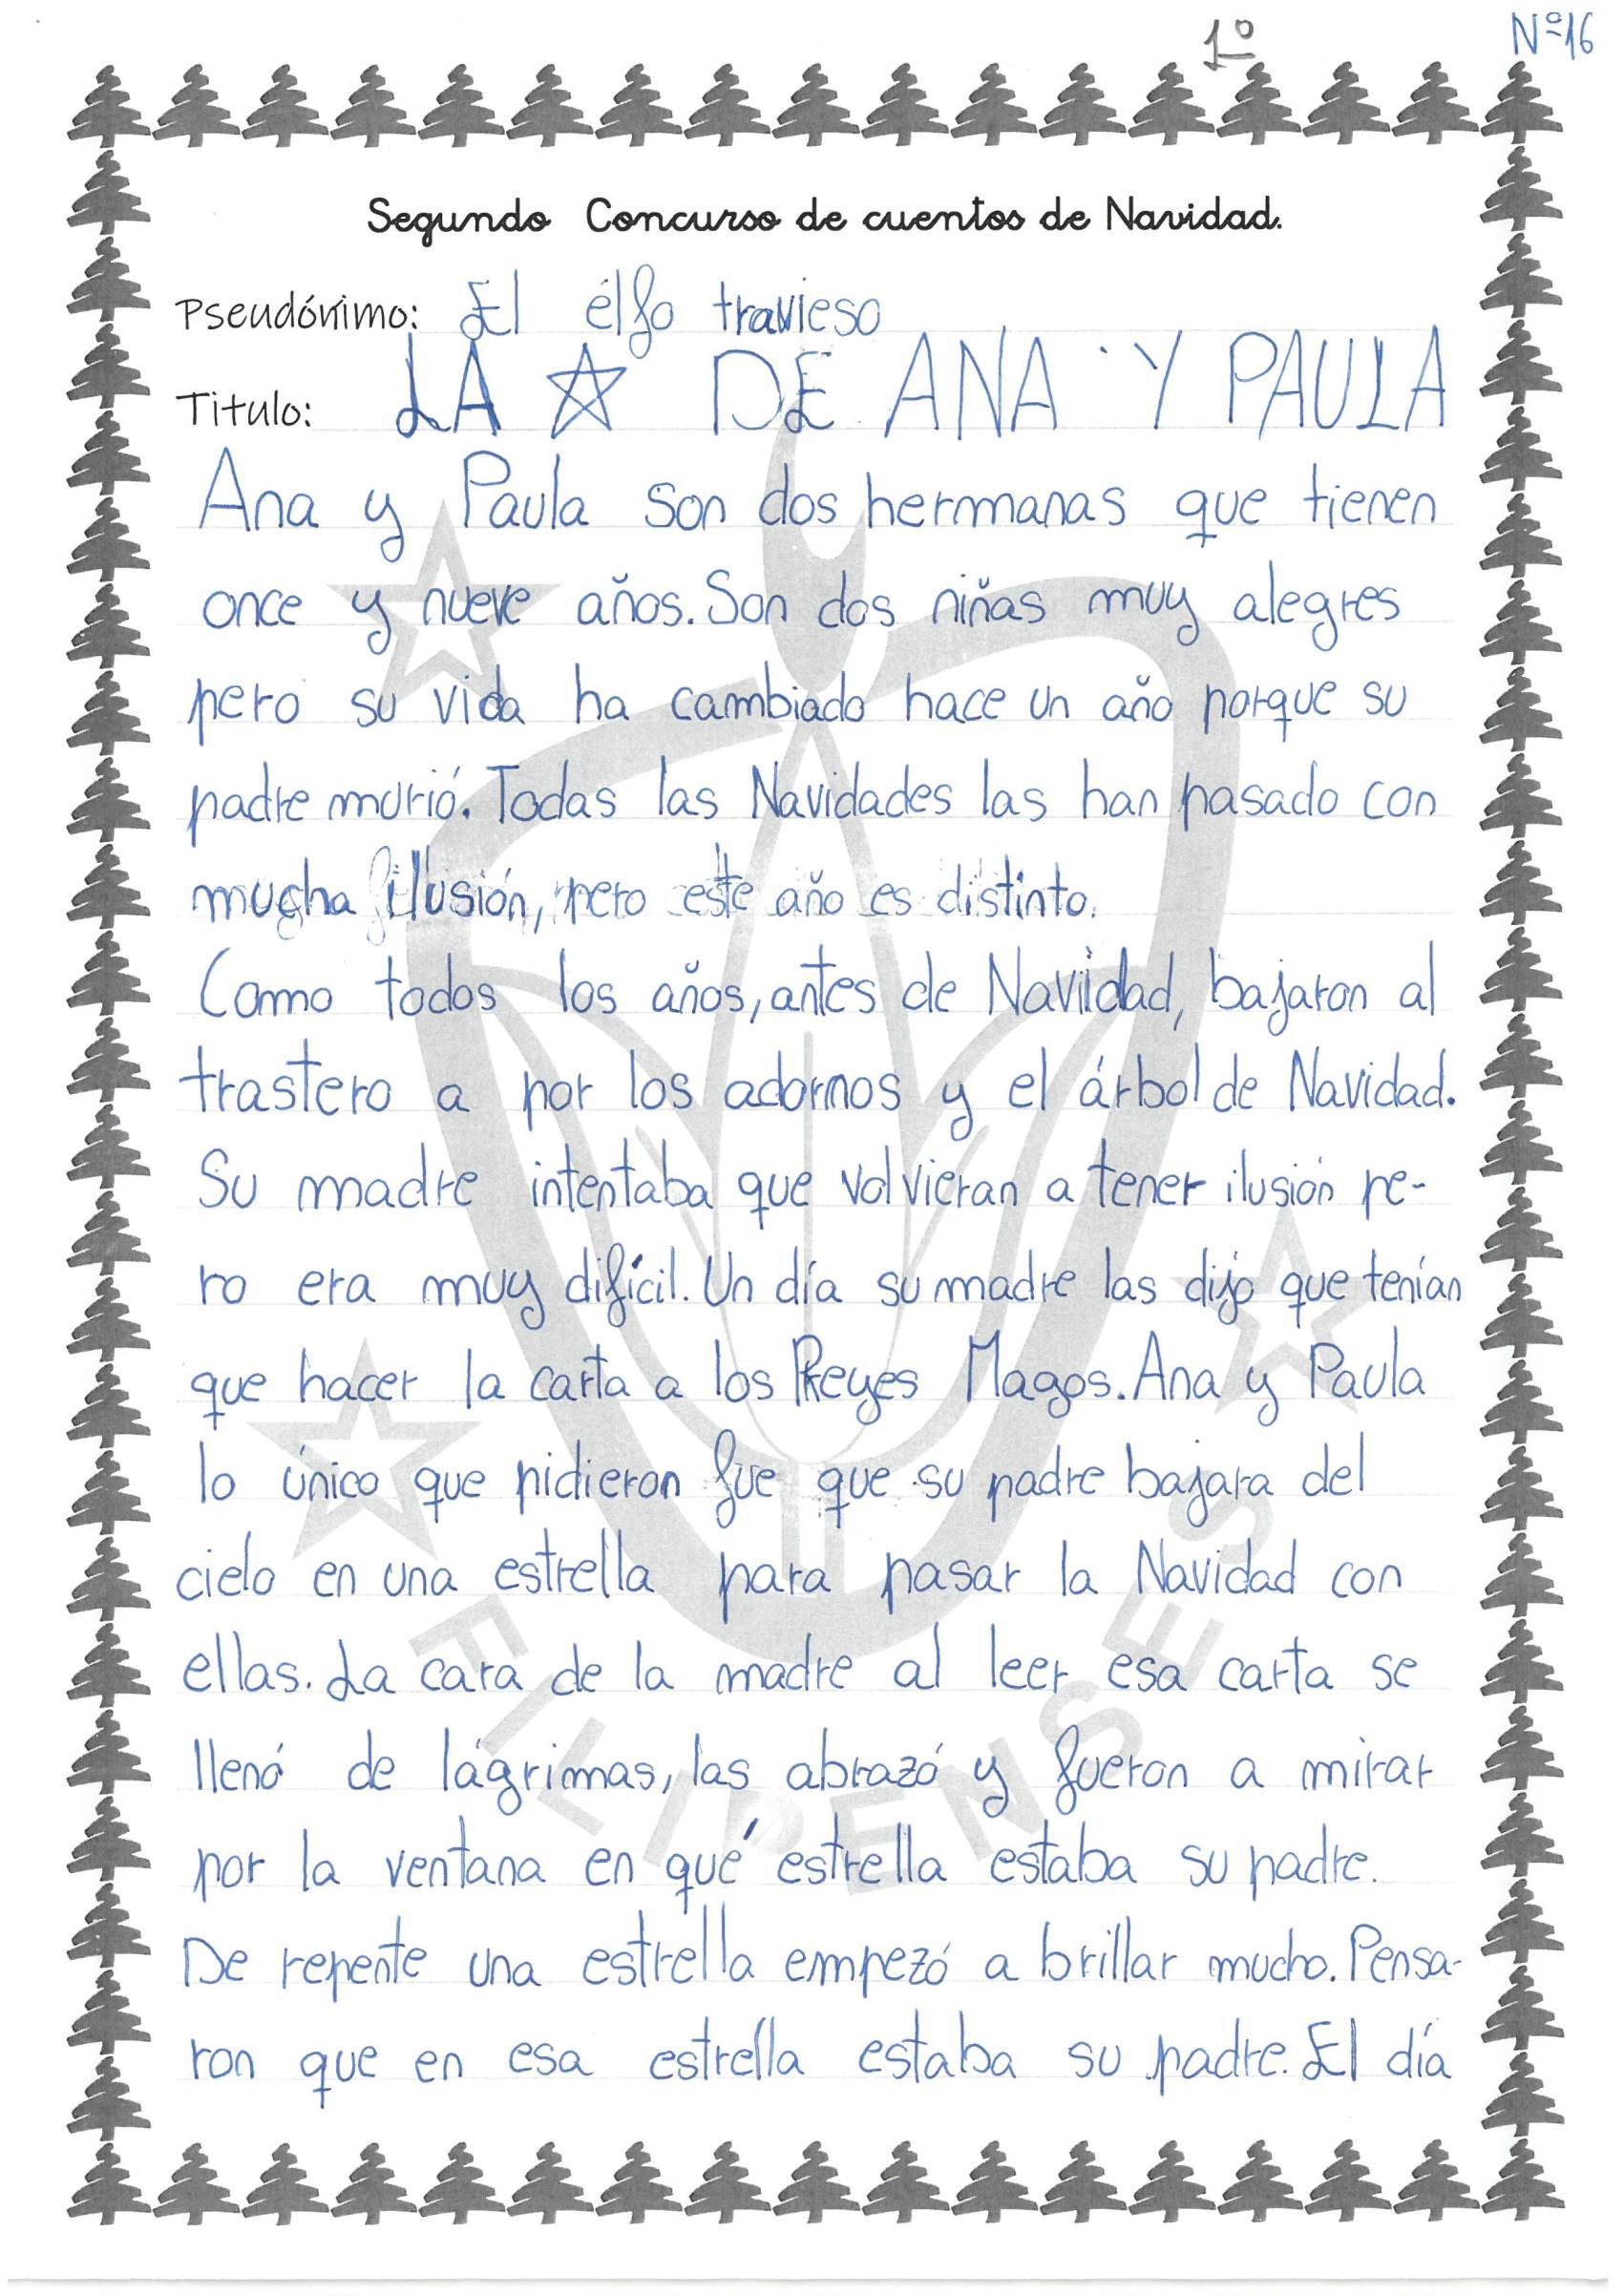 1º
Nº16
Segundo Concurso de cuentos de Navidad.
Pseudónimo: El élfo travieso
Titulo: LA ☆ DE ANA Y PAULA
Ana y Paula son dos hermanas que tienen
once y nueve años. Son dos niñas muy alegres
pero su vida ha cambiado hace un año porque su
padre murió. Todas las Navidades las han pasado con
mucha ilusión, pero este año es distinto.
Como todos los años, antes de Navidad, bajaron al
trastero a por los adornos y el árbol de Navidad.
Su madre intentaba que volvieran a tener ilusión pe-
ro era muy difícil. Un día su madre las dijo que tenían
que hacer la carta a los Reyes Magos. Ana y Paula
lo único que pidieron fue que su padre bajara del
cielo en una estrella para pasar la Navidad con
ellas. La cara de la madre al leer esa carta se
llenó de lágrimas, las abrazó y fueron a mirar
por la ventana en qué estrella estaba su padre.
De repente una estrella empezó a brillar mucho. Pensa-
ron que en esa estrella estaba su padre. El día
FILIPENSES